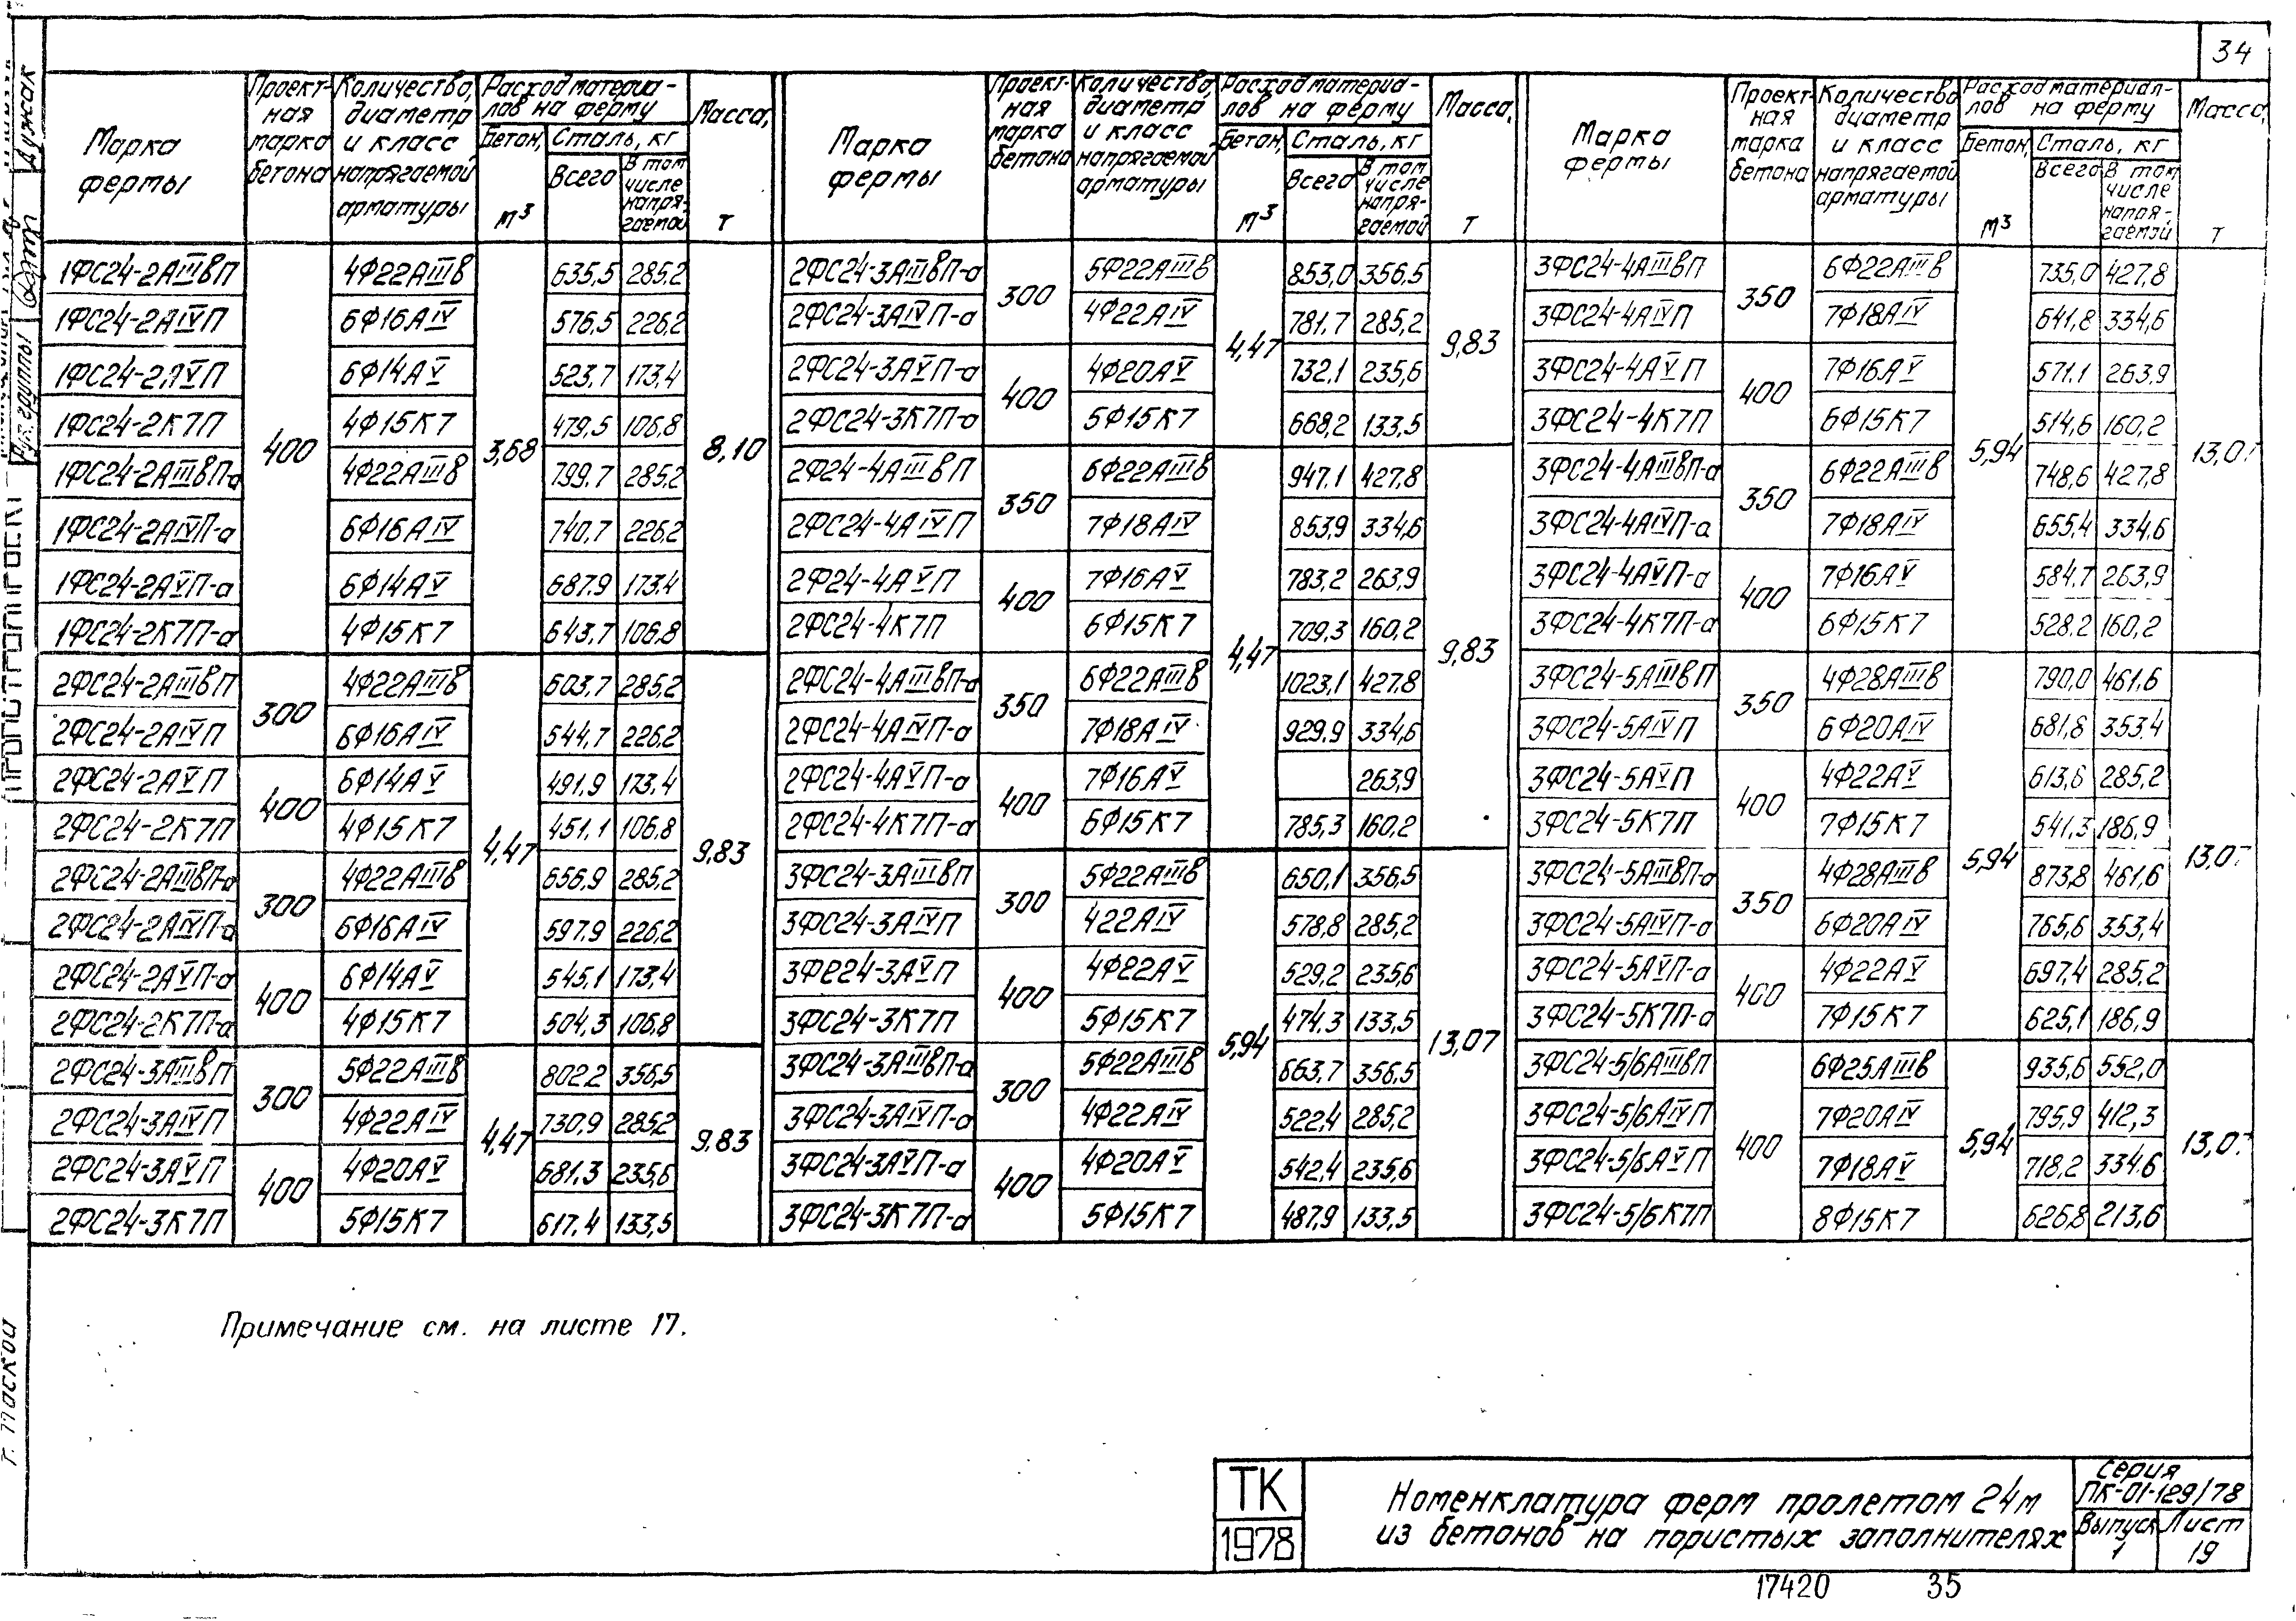 34
Марка фермы | Проектная марка бетона | Количество, диаметр и класс напрягаемой арматуры | Расход материалов на ферму | Бетон, м³ | Сталь, кг | Всего | В том числе напрягаемой | Масса, т
1ФС24-2АIIIвП | 400 | 4Ф22АIIIв | 3,68 | 635,5 | 285,2 | 8,10
1ФС24-2АIVП | 6Ф16АIV | 576,5 | 226,2
1ФС24-2АVП | 6Ф14АV | 523,7 | 173,4
1ФС24-2К7П | 4Ф15К7 | 479,5 | 106,8
1ФС24-2АIIIвП-а | 4Ф22АIIIв | 799,7 | 285,2
1ФС24-2АIVП-а | 6Ф16АIV | 740,7 | 226,2
1ФС24-2АVП-а | 6Ф14АV | 687,9 | 173,4
1ФС24-2К7П-а | 4Ф15К7 | 643,7 | 106,8
2ФС24-2АIIIвП | 300 | 4Ф22АIIIв | 4,47 | 603,7 | 285,2 | 9,83
2ФС24-2АIVП | 6Ф16АIV | 544,7 | 226,2
2ФС24-2АVП | 400 | 6Ф14АV | 491,9 | 173,4
2ФС24-2К7П | 4Ф15К7 | 451,1 | 106,8
2ФС24-2АIIIвП-а | 300 | 4Ф22АIIIв | 656,9 | 285,2
2ФС24-2АIVП-а | 6Ф16АIV | 597,9 | 226,2
2ФС24-2АVП-а | 400 | 6Ф14АV | 545,1 | 173,4
2ФС24-2К7П-а | 4Ф15К7 | 504,3 | 106,8
2ФС24-3АIIIвП | 300 | 5Ф22АIIIв | 4,47 | 802,2 | 356,5 | 9,83
2ФС24-3АIVП | 4Ф22АIV | 730,9 | 285,2
2ФС24-3АVП | 400 | 4Ф20АV | 681,3 | 235,6
2ФС24-3К7П | 5Ф15К7 | 617,4 | 133,5
Марка фермы | Проектная марка бетона | Количество, диаметр и класс напрягаемой арматуры | Расход материалов на ферму | Бетон, м³ | Сталь, кг | Всего | В том числе напрягаемой | Масса, т
2ФС24-3АIIIвП-а | 300 | 5Ф22АIIIв | 4,47 | 853,0 | 356,5 | 9,83
2ФС24-3АIVП-а | 4Ф22АIV | 781,7 | 285,2
2ФС24-3АVП-а | 400 | 4Ф20АV | 732,1 | 235,6
2ФС24-3К7П-а | 5Ф15К7 | 668,2 | 133,5
2Ф24-4АIIIвП | 350 | 6Ф22АIIIв | 4,47 | 947,1 | 427,8 | 9,83
2ФС24-4АIVП | 7Ф18АIV | 853,9 | 334,6
2Ф24-4АVП | 400 | 7Ф16АV | 783,2 | 263,9
2ФС24-4К7П | 6Ф15К7 | 709,3 | 160,2
2ФС24-4АIIIвП-а | 350 | 6Ф22АIIIв | 1023,1 | 427,8
2ФС24-4АIVП-а | 7Ф18АIV | 929,9 | 334,6
2ФС24-4АVП-а | 400 | 7Ф16АV | 263,9
2ФС24-4К7П-а | 6Ф15К7 | 785,3 | 160,2
3ФС24-3АIIIвП | 300 | 5Ф22АIIIв | 5,94 | 650,1 | 356,5 | 13,07
3ФС24-3АIVП | 422АIV | 578,8 | 285,2
3ФС24-3АVП | 400 | 4Ф22АV | 529,2 | 235,6
3ФС24-3К7П | 5Ф15К7 | 474,3 | 133,5
3ФС24-3АIIIвП-а | 300 | 5Ф22АIIIв | 663,7 | 356,5
3ФС24-3АIVП-а | 4Ф22АIV | 522,4 | 285,2
3ФС24-3АVП-а | 400 | 4Ф20АV | 542,4 | 235,6
3ФС24-3К7П-а | 5Ф15К7 | 487,9 | 133,5
Марка фермы | Проектная марка бетона | Количество диаметр и класс напрягаемой арматуры | Расход материалов на ферму | Бетон, м³ | Сталь, кг | Всего | В том числе напрягаемой | Масса, т
3ФС24-4АIIIвП | 350 | 6Ф22АIIIв | 5,94 | 735,0 | 427,8 | 13,07
3ФС24-4АIVП | 7Ф18АIV | 641,8 | 334,6
3ФС24-4АVП | 400 | 7Ф16АV | 571,1 | 263,9
3ФС24-4К7П | 6Ф15К7 | 514,6 | 160,2
3ФС24-4АIIIвП-а | 350 | 6Ф22АIIIв | 748,6 | 427,8
3ФС24-4АIVП-а | 7Ф18АIV | 655,4 | 334,6
3ФС24-4АVП-а | 400 | 7Ф16АV | 584,7 | 263,9
3ФС24-4К7П-а | 6Ф15К7 | 528,2 | 160,2
3ФС24-5АIIIвП | 350 | 4Ф28АIIIв | 5,94 | 790,0 | 461,6 | 13,07
3ФС24-5АIVП | 6Ф20АIV | 681,8 | 353,4
3ФС24-5АVП | 400 | 4Ф22АV | 613,6 | 285,2
3ФС24-5К7П | 7Ф15К7 | 541,3 | 186,9
3ФС24-5АIIIвП-а | 350 | 4Ф28АIIIв | 873,8 | 461,6
3ФС24-5АIVП-а | 6Ф20АIV | 765,6 | 353,4
3ФС24-5АVП-а | 400 | 4Ф22АV | 697,4 | 285,2
3ФС24-5К7П-а | 7Ф15К7 | 625,1 | 186,9
3ФС24-5/6АIIIвП | 400 | 6Ф25АIIIв | 5,94 | 935,6 | 552,0 | 13,07
3ФС24-5/6АIVП | 7Ф20АIV | 795,9 | 412,3
3ФС24-5/6АVП | 7Ф18АV | 718,2 | 334,6
3ФС24-5/6К7П | 8Ф15К7 | 626,8 | 213,6
Примечание см. на листе 17.
ТК
1978
Номенклатура ферм пролетом 24м
из бетонов на пористых заполнителях
Серия
ПК-01-129/78
Выпуск 1
Лист 19
17420 35
Рук. группы
г. Москва